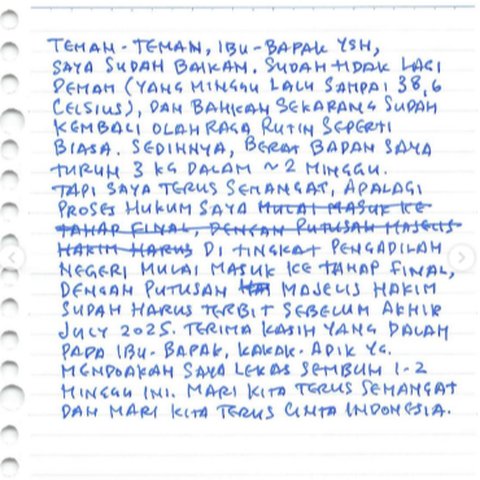 TEMAN-TEMAN, IBU-BAPAK YSH,
SAYA SUDAH BAIKAN. SUDAH TIDAK LAGI
DEMAM (YANG MINGGU LALU SAMPAI 38,6
CELSIUS), DAN BAHKAN SEKARANG SUDAH
KEMBALI OLAHRAGA RUTIN SEPERTI
BIASA. SEDIHNYA, BERAT BADAN SAYA
TURUN 3 KG DALAM ~2 MINGGU.
TAPI SAYA TERUS SEMANGAT, APALAGI
PROSES HUKUM SAYA MULAI MASUK KE
TAHAP FINAL, DENGAN PUTUSAN MAJELIS
HAKIM HARUS DI TINGKAT PENGADILAN
NEGERI MULAI MASUK KE TAHAP FINAL,
DENGAN PUTUSAN MAJELIS HAKIM
SUDAH HARUS TERBIT SEBELUM AKHIR
JULY 2025. TERIMA KASIH YANG DALAM
PADA IBU-BAPAK, KAKAK-ADIK YG.
MENDOAKAN SAYA LEKAS SEMBUH 1-2
MINGGU INI. MARI KITA TERUS SEMANGAT
DAN MARI KITA TERUS CINTA INDONESIA.